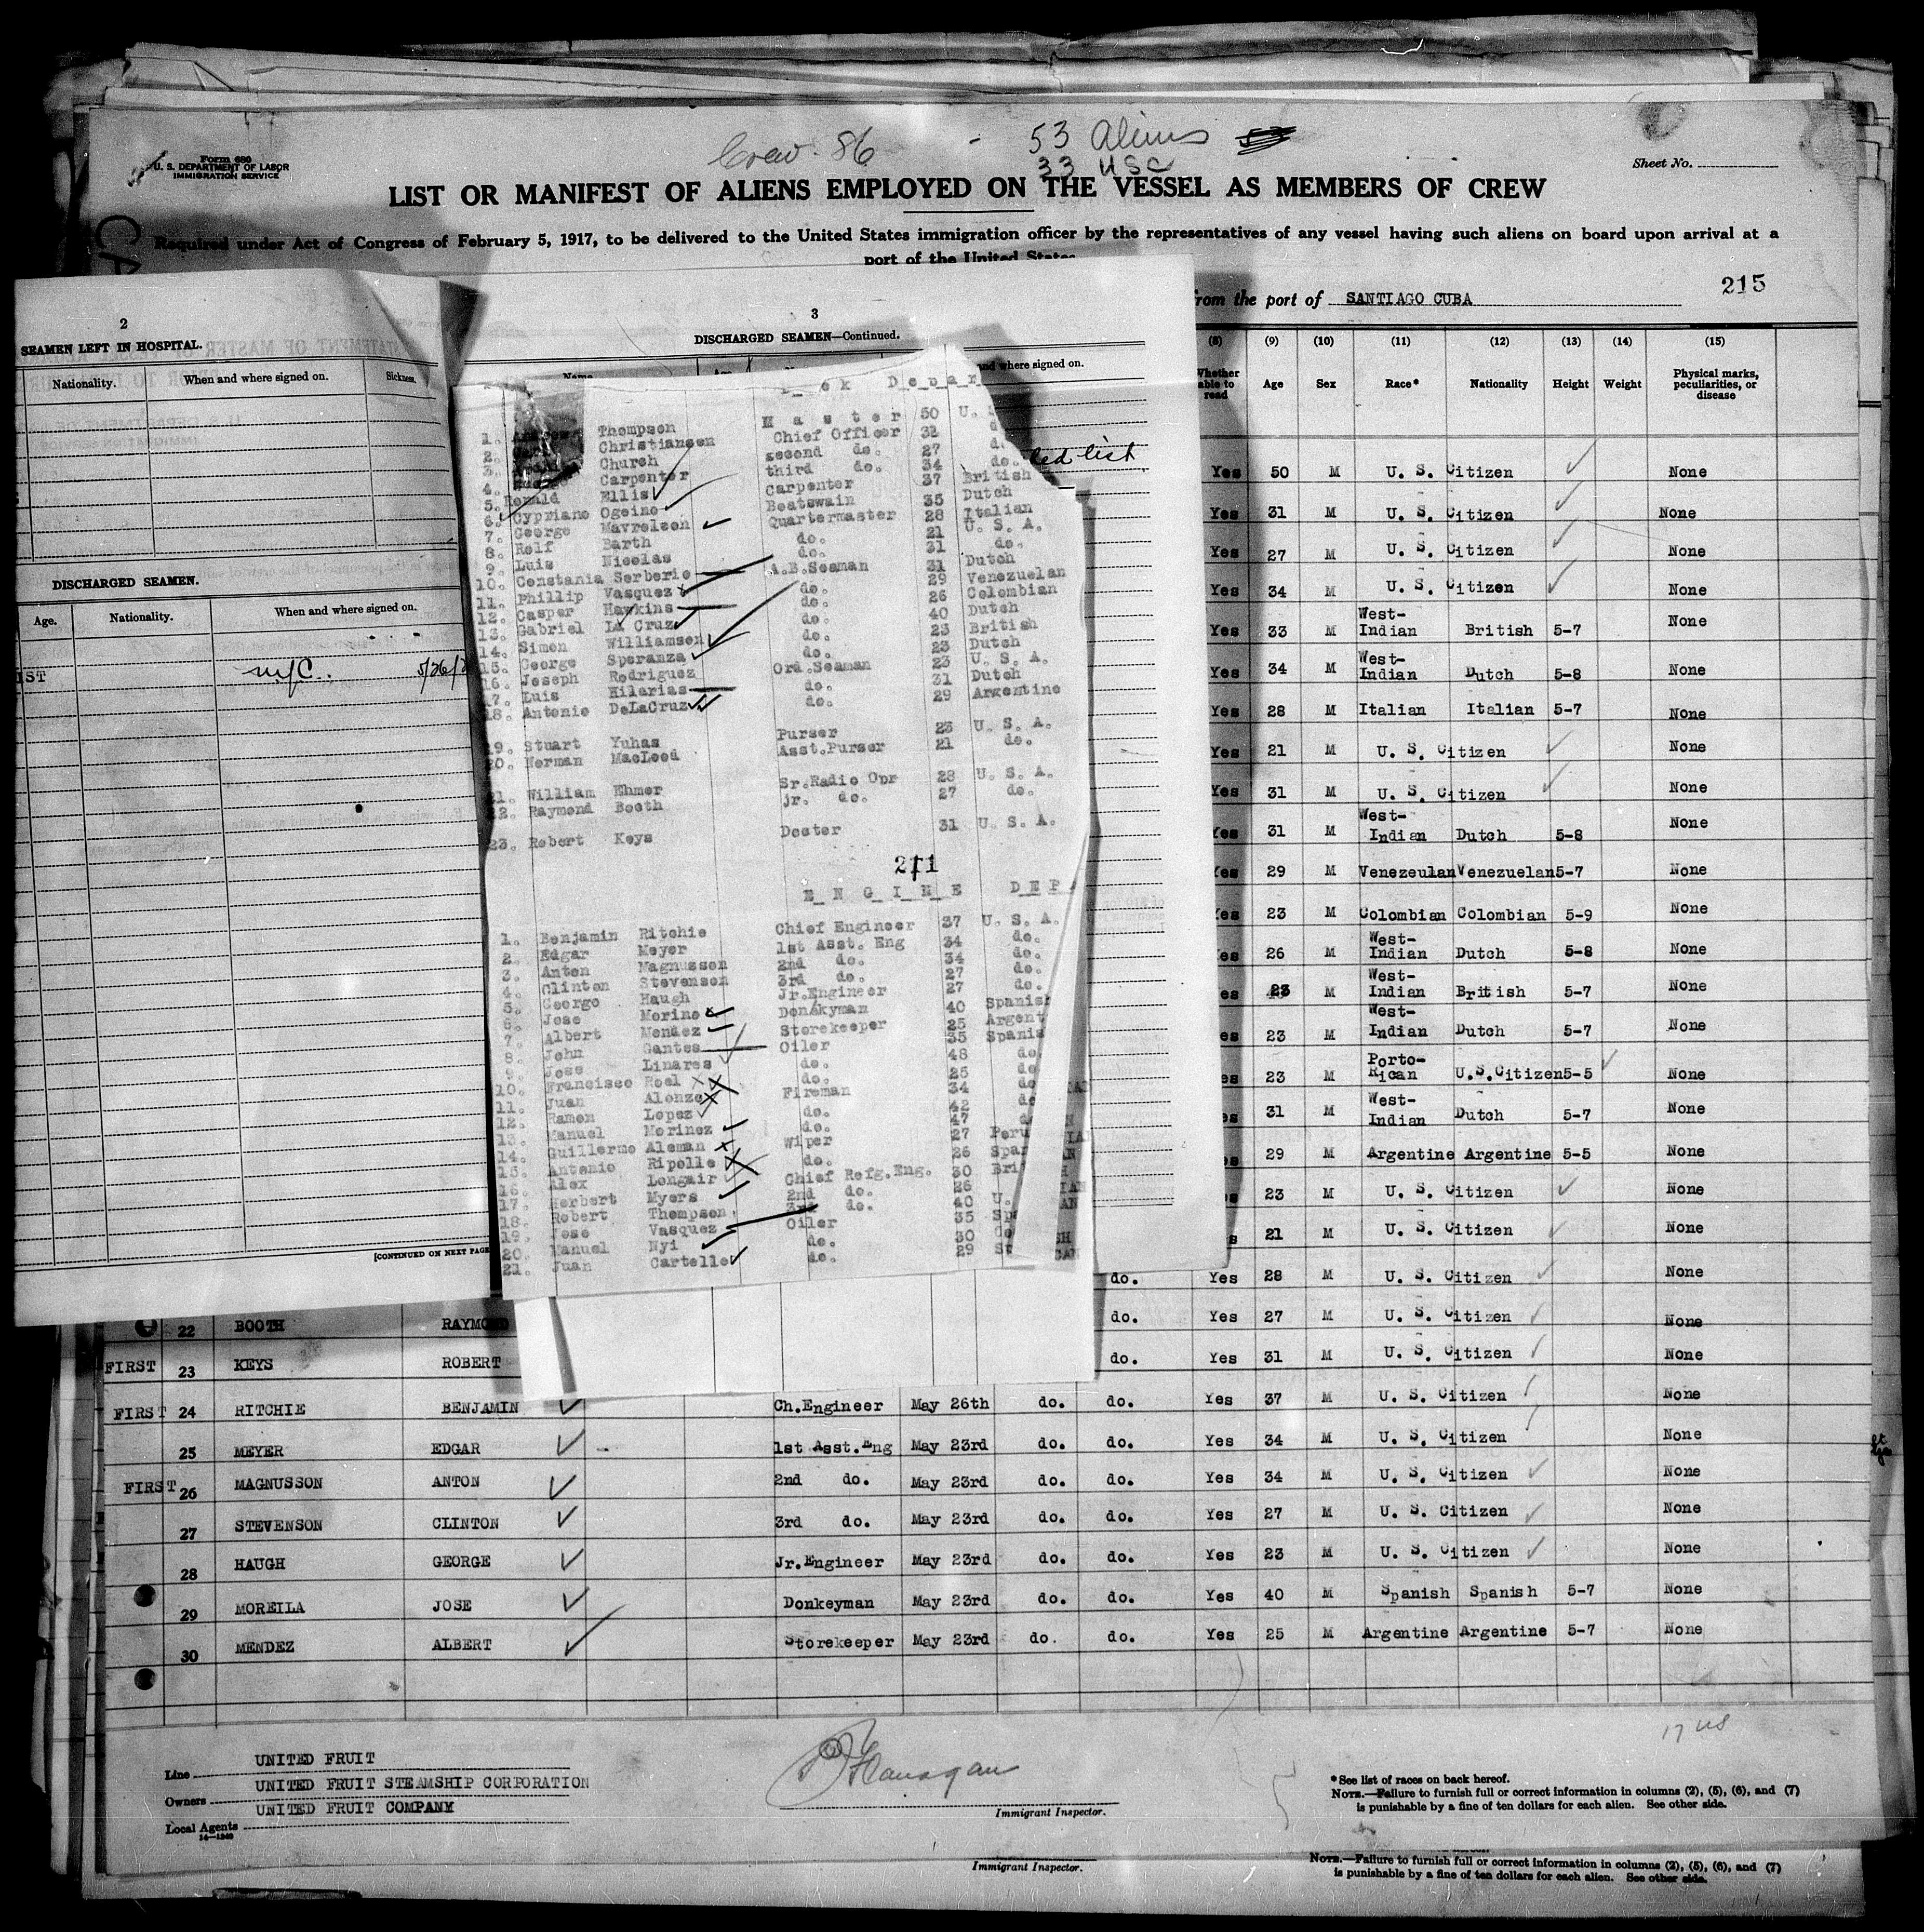 Crew. 86 - 53 Aliens
33 USC
Form 680
U. S. DEPARTMENT OF LABOR
IMMIGRATION SERVICE
Sheet No.
LIST OR MANIFEST OF ALIENS EMPLOYED ON THE VESSEL AS MEMBERS OF CREW
Required under Act of Congress of February 5, 1917, to be delivered to the United States immigration officer by the representatives of any vessel having such aliens on board upon arrival at a
port of the United States
from the port of SANTIAGO CUBA
215
2
SEAMEN LEFT IN HOSPITAL.
Nationality. When and where signed on. Sickness.
DISCHARGED SEAMEN.
Age. Nationality. When and where signed on.
IST N/C. 5/26/
[CONTINUED ON NEXT PAGE
3
DISCHARGED SEAMEN—Continued.
and where signed on.
ed list
e k D e p a r
Thompson M a s t e r 50 U. S
1.
2. Christiansen Chief Officer 32 d
3. Church second do. 27 d.
4. Carpenter third do. 34 do.
5. Ronald Ellis Carpenter 37 British
6. Cypriano Ogeino Boatswain 35 Dutch
7. George Mavrelzen Quartermaster 28 Italian
8. Rolf Barth do. 21 U. S. A.
9. Luis Nicolas do. 31 do.
10. Constania Serberie A.B.Seaman 31 Dutch
11. Phillip Vasquez do. 29 Venezuelan
12. Casper Hawkins do. 26 Colombian
13. Gabriel La Cruz do. 40 Dutch
14. Simon Williamson do. 23 British
15. George Speranza do. 23 Dutch
16. Joseph Rodriguez Ord.Seaman 23 U. S. A.
17. Luis Hilarias do. 31 Dutch
18. Antonio DeLaCruz do. 29 Argentine
19. Stuart Yuhas Purser 23 U. S. A.
20. Norman MacLeod Asst.Purser 21 do.
21. William Ehmer Sr.Radio Opr 28 U. S. A.
22. Raymond Booth jr. do. 27 do.
23. Robert Keys Doctor 31 U. S. A.
271
E N G I N E D E P A
1. Benjamin Ritchie Chief Engineer 37 U. S. A.
2. Edgar Meyer 1st Asst. Eng 34 do.
3. Anton Magnussen 2nd do. 34 do.
4. Clinton Stevenson 3rd do. 27 do.
5. George Haugh Jr.Engineer 27 do.
6. Jose Morino Donakyman 40 Spanish
7. Albert Mendez Storekeeper 25 Argent
8. John Gantes Oiler 35 Spanis
9. Jose Linares do. 48 do.
10. Francisco Roel do. 25 do
11. Juan Alonzo Fireman 34 do
12. Ramon Lopez do. 42 do
13. Manuel Morinez do. 47 d
14. Guillermo Aleman Wiper 27 Peru
15. Antonio Ripolle do. 26 Span
16. Alex Longair Chief Refg.Eng. 30 Brit
17. Herbert Myers 2nd do. 26
18. Robert Thompson 3rd do. 40 U.
19. Jose Vasquez Oiler 35 Sp
20. Manuel Nyi do. 30 do
21. Juan Cartelle do. 29
(8) (9) (10) (11) (12) (13) (14) (15)
Whether able to read Age Sex Race* Nationality Height Weight Physical marks, peculiarities, or disease
Yes 50 M U. S. Citizen None
Yes 31 M U. S. Citizen None
Yes 27 M U. S. Citizen None
Yes 34 M U. S. Citizen None
Yes 33 M West-Indian British 5-7 None
Yes 34 M West-Indian Dutch 5-8 None
Yes 28 M Italian Italian 5-7 None
Yes 21 M U. S. Citizen None
Yes 31 M U. S. Citizen None
Yes 31 M West-Indian Dutch 5-8 None
Yes 29 M Venezeulan Venezuelan 5-7 None
Yes 23 M Colombian Colombian 5-9 None
es 26 M West-Indian Dutch 5-8 None
es 23 M West-Indian British 5-7 None
es 23 M West-Indian Dutch 5-7 None
es 23 M Porto-Rican U.S.Citizen 5-5 None
es 31 M West-Indian Dutch 5-7 None
es 29 M Argentine Argentine 5-5 None
s 23 M U. S. Citizen None
s 21 M U. S. Citizen None
do. Yes 28 M U. S. Citizen None
22 BOOTH RAYMOND do. Yes 27 M U. S. Citizen None
FIRST 23 KEYS ROBERT do. Yes 31 M U. S. Citizen None
FIRST 24 RITCHIE BENJAMIN Ch.Engineer May 26th do. do. Yes 37 M U. S. Citizen None
25 MEYER EDGAR 1st Asst.Eng May 23rd do. do. Yes 34 M U. S. Citizen None
FIRST 26 MAGNUSSON ANTON 2nd do. May 23rd do. do. Yes 34 M U. S. Citizen None
27 STEVENSON CLINTON 3rd do. May 23rd do. do. Yes 27 M U. S. Citizen None
28 HAUGH GEORGE Jr.Engineer May 23rd do. do. Yes 23 M U. S. Citizen None
29 MOREILA JOSE Donkeyman May 23rd do. do. Yes 40 M Spanish Spanish 5-7 None
30 MENDEZ ALBERT Storekeeper May 23rd do. do. Yes 25 M Argentine Argentine 5-7 None
17 US
Line UNITED FRUIT
Owners UNITED FRUIT STEAMSHIP CORPORATION
Local Agents UNITED FRUIT COMPANY
14—1240
Flanagan
Immigrant Inspector.
*See list of races on back hereof.
NOTE.—Failure to furnish full or correct information in columns (2), (5), (6), and (7)
is punishable by a fine of ten dollars for each alien. See other side.
Immigrant Inspector.
NOTE.—Failure to furnish full or correct information in columns (2), (5), (6), and (7)
is punishable by a fine of ten dollars for each alien. See other side.